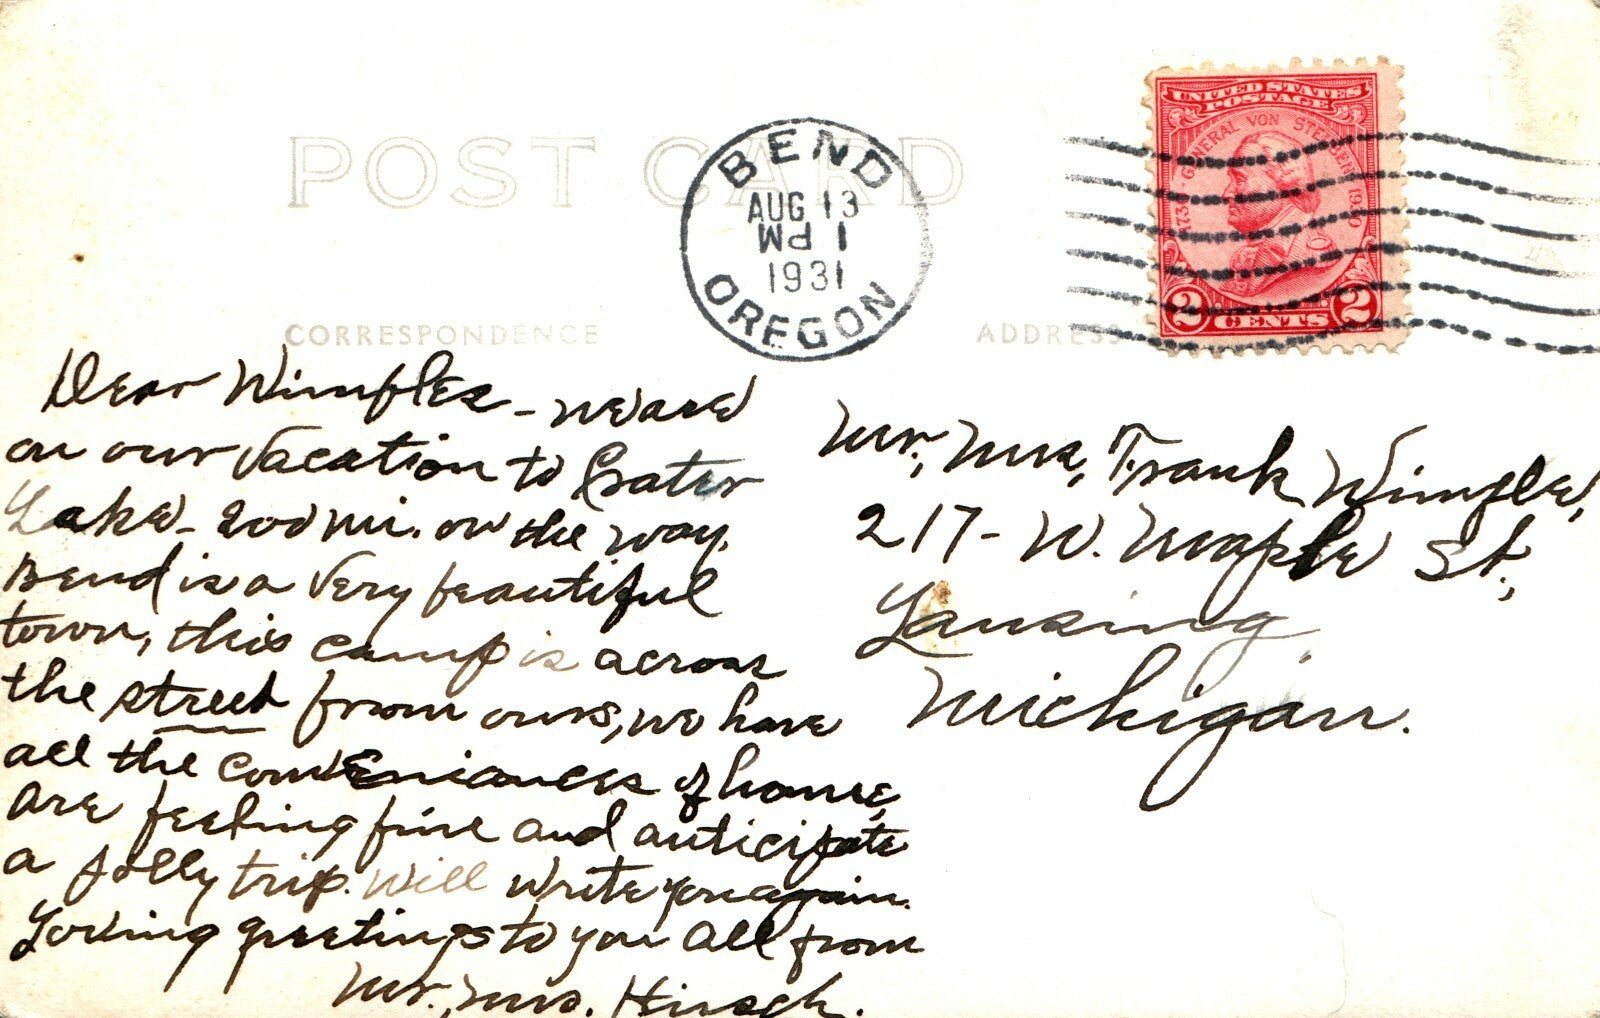 POST CARD
BEND
AUG 13
1 PM
1931
OREGON
UNITED STATES
POSTAGE
1730 · GENERAL VON STEUBEN · 1930
2 CENTS 2
CORRESPONDENCE
ADDRESS
Dear Wimples - we are
on our vacation to Crater
Lake - 200 mi. on the way.
Bend is a very beautiful
town, this camp is across
the street from ours, we have
all the conveniances of home,
are feeling fine and anticipate
a jolly trip. Will write you again.
Loving greetings to you all from
Mr., Mrs. Hirsch.
Mr., Mrs., Frank Wimple,
217 - W. Maple St.,
Lansing,
Michigan.